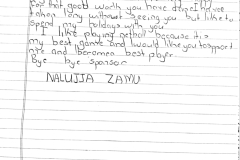 for that good work you have done I have
taken long without seeing you but like to
spend my holidays with you
I like playing netball because it is
my best game and would like you to support
me and become a best player
Bye bye sponsor
NALUJJA ZAMU